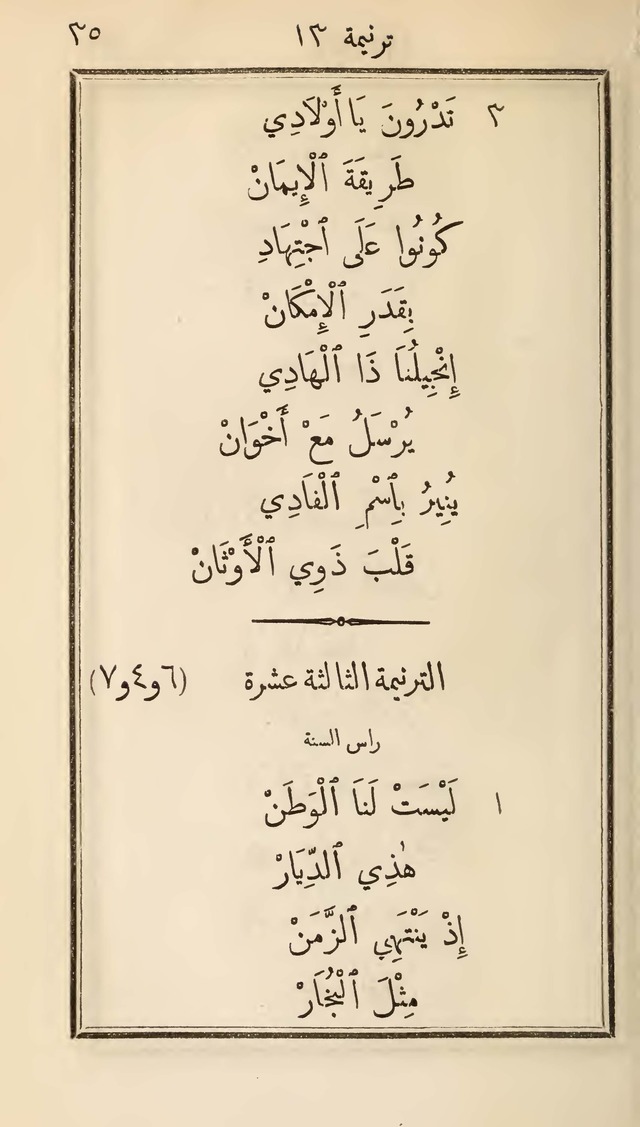 ترنيمة ١٣ ٣٥
٣ تَدْرُونَ يَا أَوْلَادِي
طَرِيقَةَ ٱلْإِيمَانْ
كُونُوا عَلَى ٱجْتِهَادِ
بِقَدَرِ ٱلْإِمْكَانْ
إِنْجِيلُنَا ذَا ٱلْهَادِي
يُرْسَلُ مَعْ أَخْوَانْ
يُنِيرُ بِٱسْمِ ٱلْفَادِي
قَلْبَ ذَوِي ٱلْأَوْثَانْ
الترنيمة الثالثة عشرة (٦و٤و٧)
راس السنة
١ لَيْسَتْ لَنَا ٱلْوَطَنْ
هٰذِي ٱلدِّيَارْ
إِذْ يَنْتَهِي ٱلزَّمَنْ
مِثْلَ ٱلْبُخَارْ